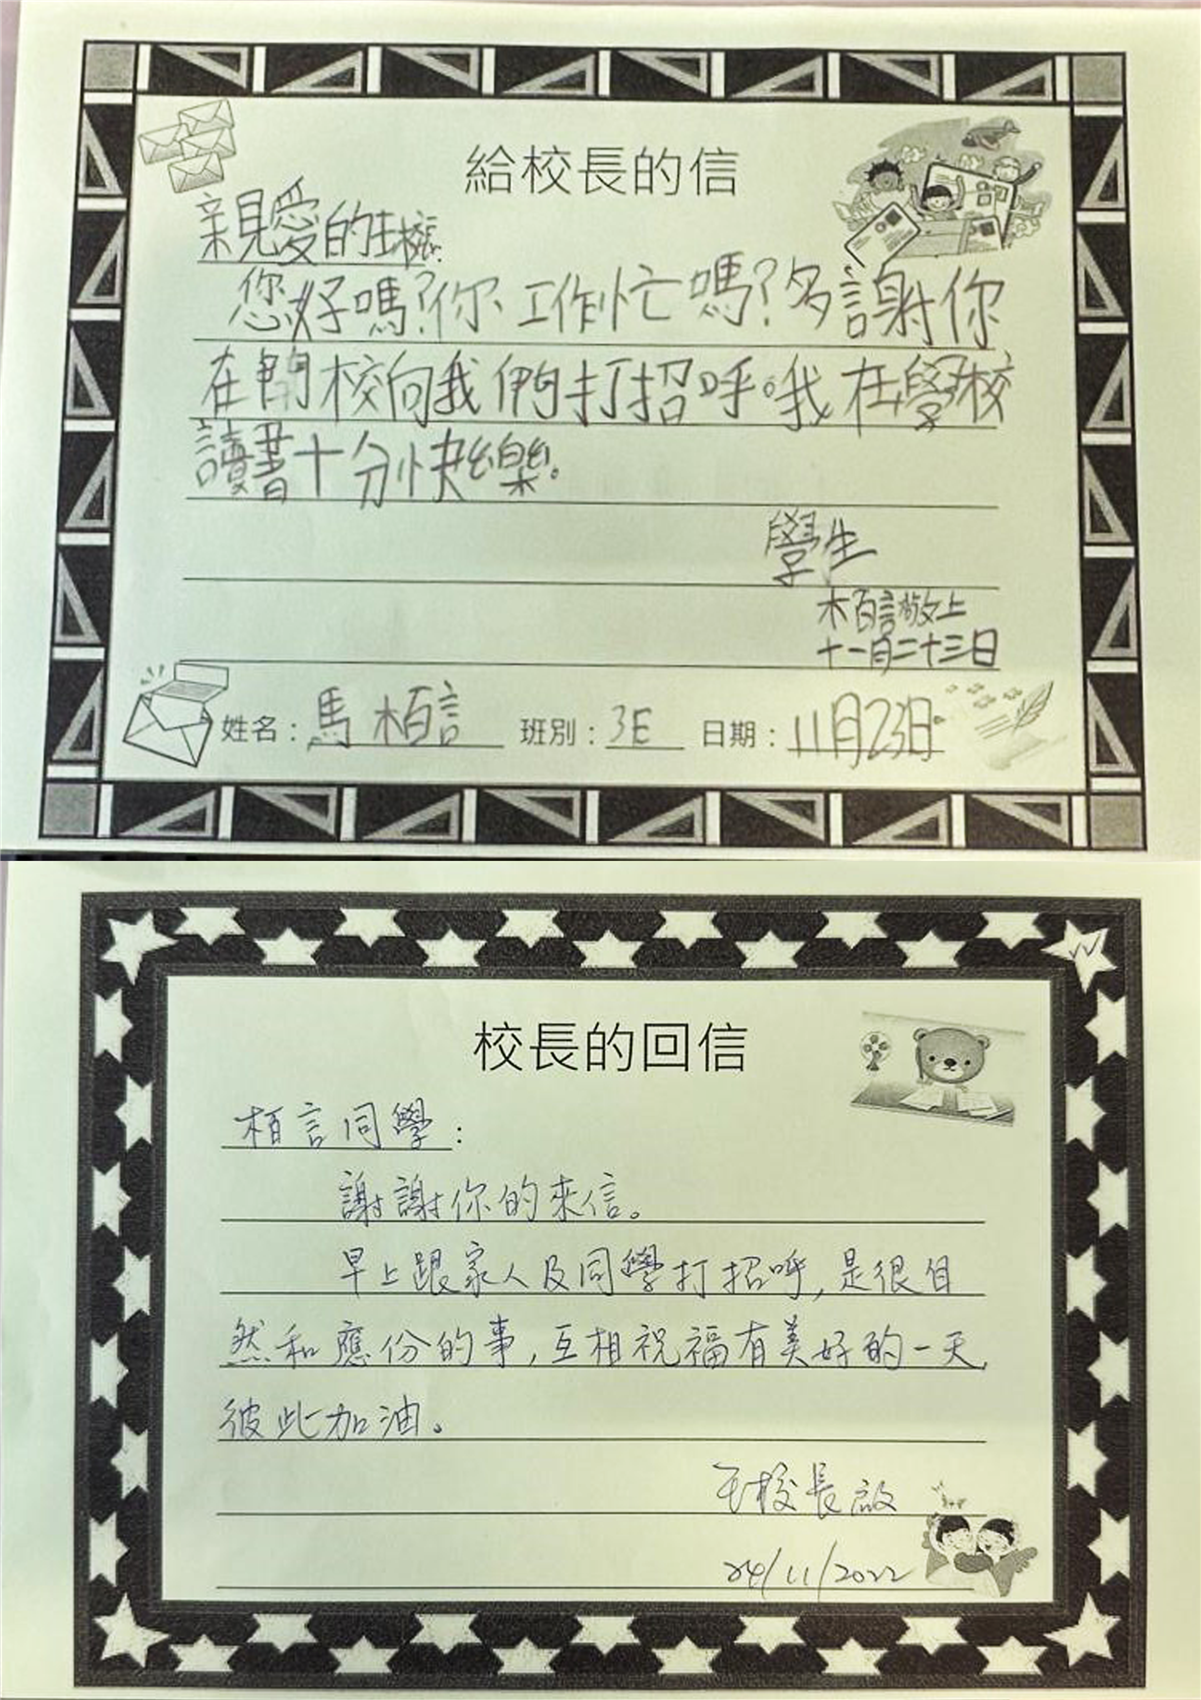 給校長的信
親愛的王校長:
您好嗎?你工作忙嗎?多謝你
在門校向我們打招呼。我在學校
讀書十分快樂。
學生
柏言敬上
十一月二十三日
姓名：馬栢言 班別：3E 日期：11月23日
校長的回信
栢言同學：
謝謝你的來信。
早上跟家人及同學打招呼，是很自
然和應份的事，互相祝福有美好的一天，
彼此加油。
王校長啟
24/11/2022